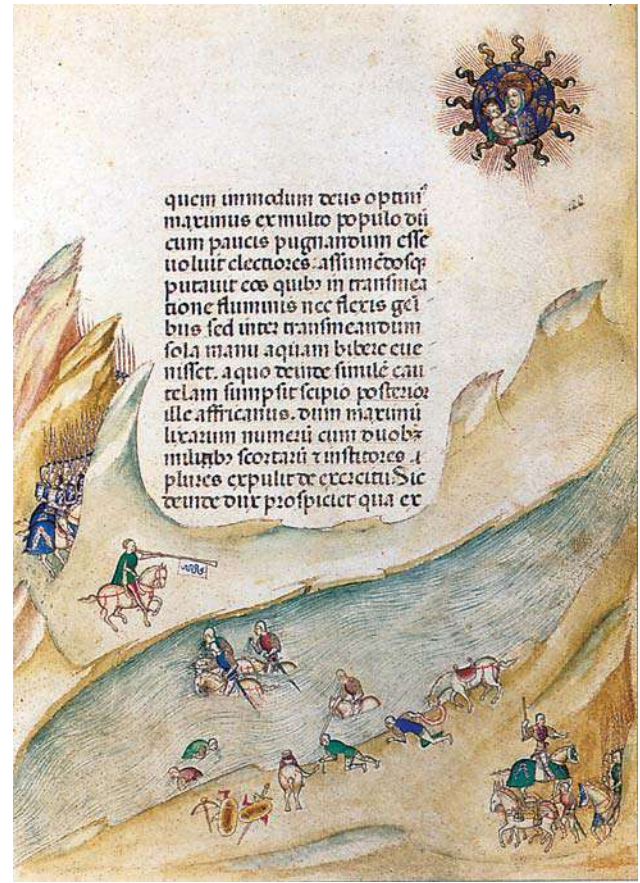 quem immodum deus optim⁹
maximus ex multo populo dū
cum paucis pugnandum esse
uoluit electiores. assumēdosq
putauit eos quibꝫ in transmea
tione fluminis nec flexis geī
bus sed inter transmeandum
sola manu aquam bibere eue
nisset. a quo deinde similē cau
telam sumpsit scipio posterior
ille affricanus. dum maximū
lixarum numerū cum duobꝫ
militibꝫ scortarū ⁊ institores.
plures expulit de exercitu. Sic
deinde dux prospiciet qua ex